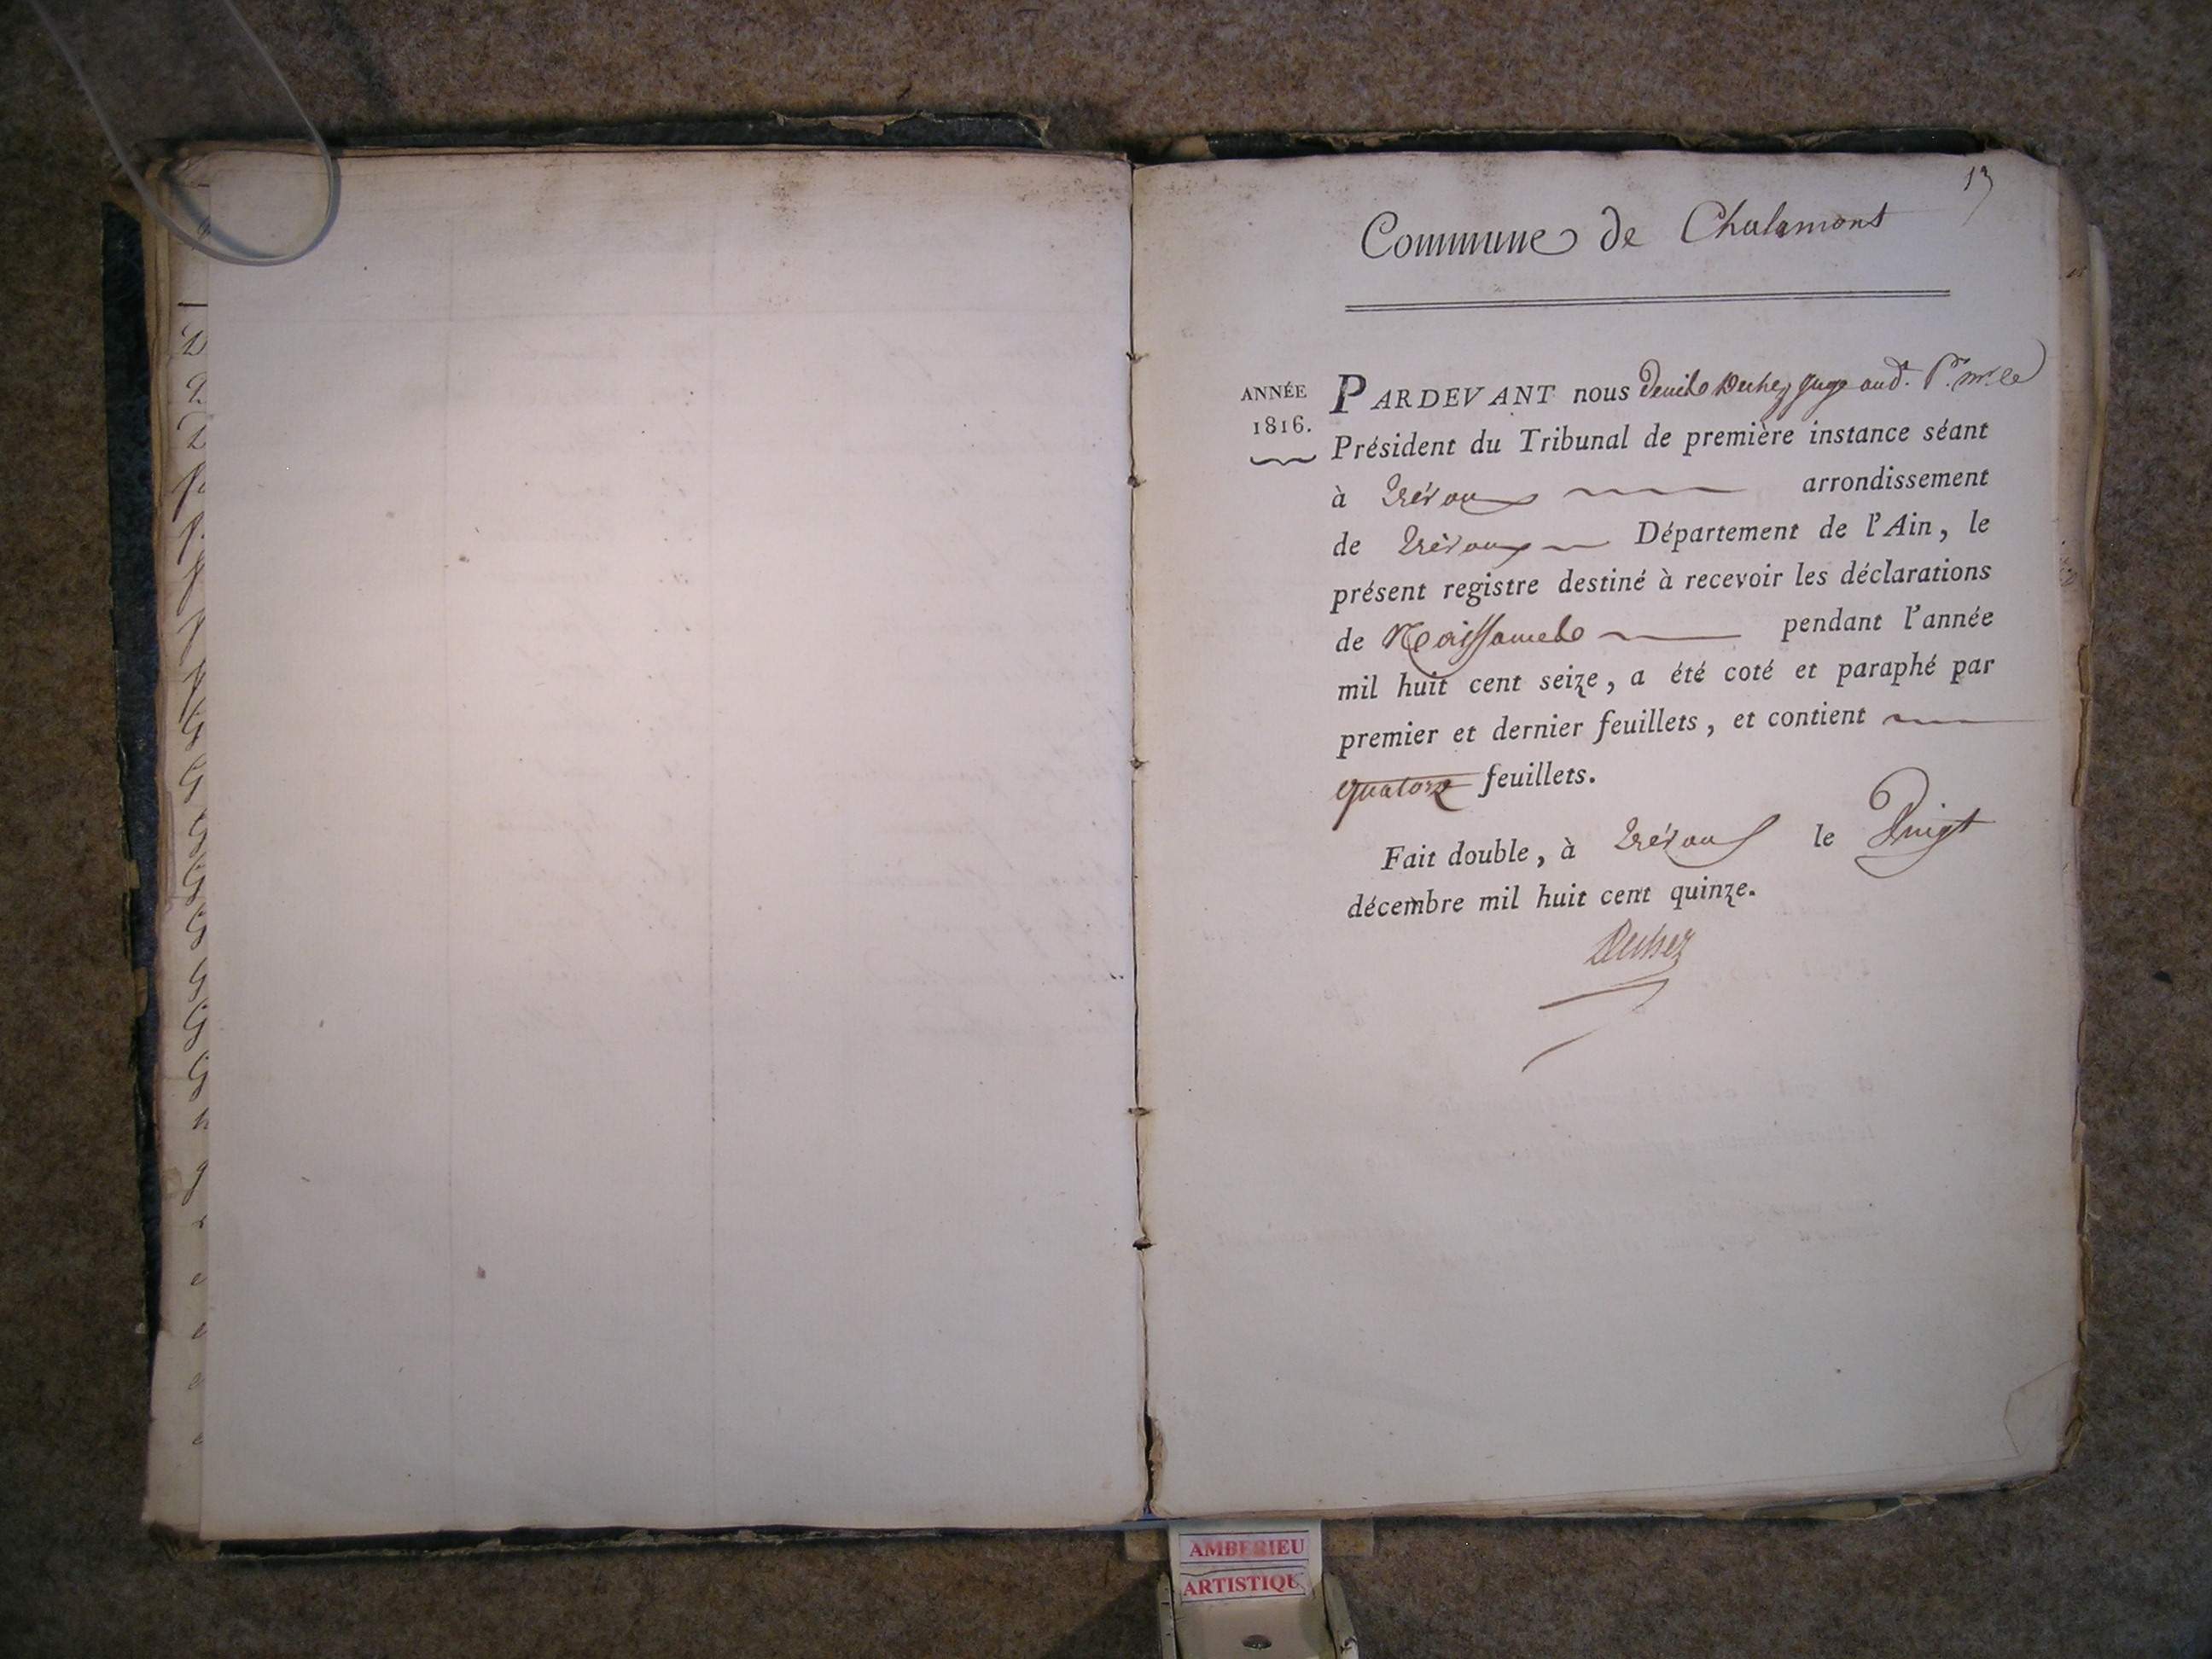 13
Commune de Chalamont
ANNÉE
1816.
PARDEVANT nous Denis Dechez Juge aud. Pr. Mr. le
Président du Tribunal de première instance séant
à Trévoux arrondissement
de Trévoux Département de l'Ain, le
présent registre destiné à recevoir les déclarations
de Naissances pendant l'année
mil huit cent seize, a été coté et paraphé par
premier et dernier feuillets, et contient
quatorze feuillets.
Fait double, à Trévoux le Vingt
décembre mil huit cent quinze.
Dechez
AMBERIEU
ARTISTIQU